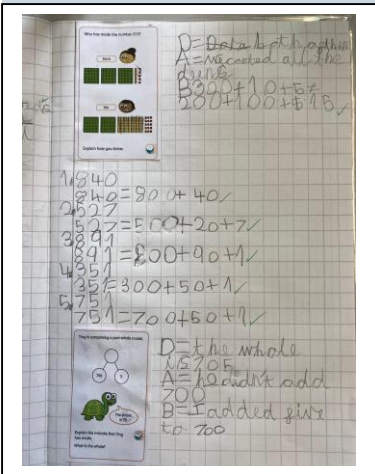 Who has made the number 315?
Explain how you know.
D= Data both of them
A= necoted all the
B300+10+5
200+100+15✓
1.840
840=800+40✓
2.527
527=500+20+7✓
3.891
891=800+90+1✓
4.351
351=300+50+1✓
5.751
751=700+50+1✓
Tiny is completing a part-whole model.
Explain the mistake that Tiny has made.
What is the whole?
D=the whole
is 705
A=he didn't add
700
B=I added five
to 700